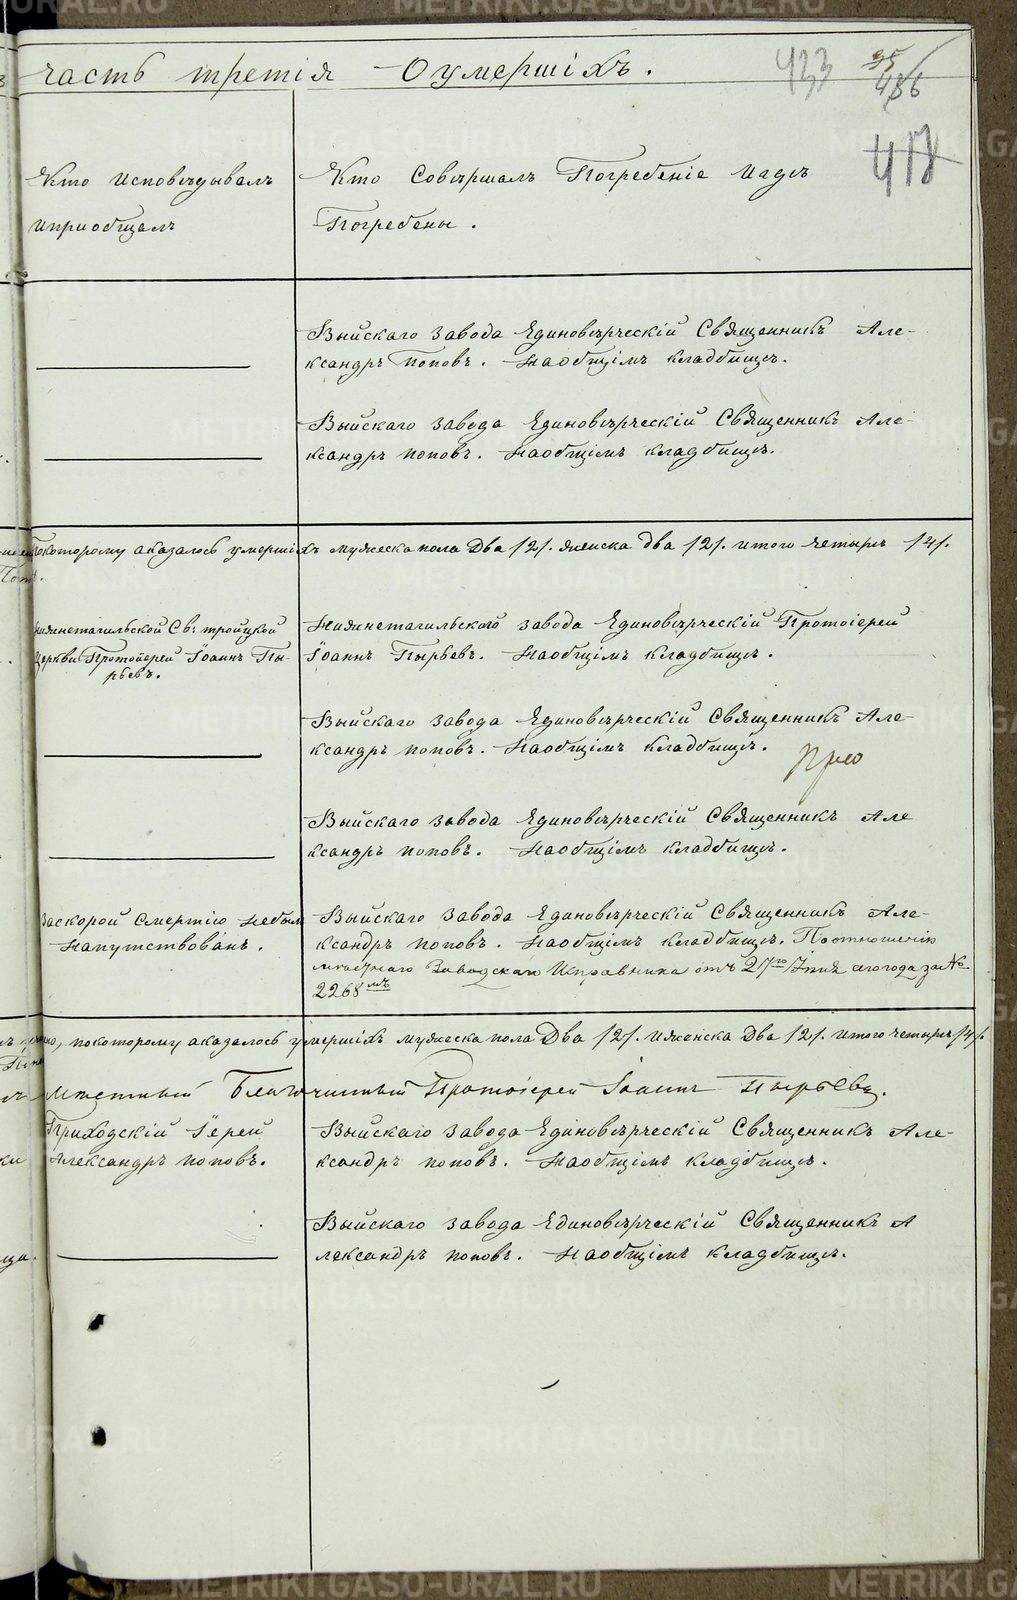 часть третія О умершіхъ.
433
35
436
418
Кто Исповѣдывалъ
и пріобщалъ
Кто Совершалъ Погребеніе И гдѣ
Погребены.
Выйскаго завода Единовѣрческій Священникъ Але-
ксандръ Поповъ. На общімъ кладбищѣ.
Выйскаго завода Единовѣрческій Священникъ Але-
ксандръ поповъ. На общімъ кладбищѣ.
по которому аказалось умершіхъ мужеска пола Два /2/. женска два /2/. итого четыре /4/.
нижнетагильской Св: тройцкой
Церкви Протоіерей Іоаннъ Пы-
рьевъ.
Нижнетагильского завода Единовѣрческій Протоіерей
Іоаннъ Пырьевъ. На общімъ кладбищѣ.
Выйскаго завода Единовѣрческій Священникъ Але-
ксандръ поповъ. На общімъ кладбищѣ.
Выйскаго завода Единовѣрческій Священникъ Але
ксандръ поповъ. На общімъ кладбищѣ.
За скорой Смертію небылъ
Напутствованъ.
Выйскаго завода Единовѣрческій Священникъ Але-
ксандръ поповъ. На общімъ кладбищѣ. По отношенію
местнаго Заводскаго Исправника отъ 27го Іюня сего года за №
2268мъ
по которому аказалось умершіхъ мужеска пола Два /2/. и женска Два /2/. итого четыре /4/.
Мѣстный Благочинный Протоіерей Іоаннъ Пырьевъ.
Приходскій Іерей
Александръ поповъ.
Выйскаго завода Единовѣрческій Священникъ Але-
ксандръ поповъ. На общімъ кладбищѣ.
Выйскаго завода Единовѣрческій Священникъ А
лександръ поповъ. На общімъ кладбищѣ.
METRIKI.GASO-URAL.RU